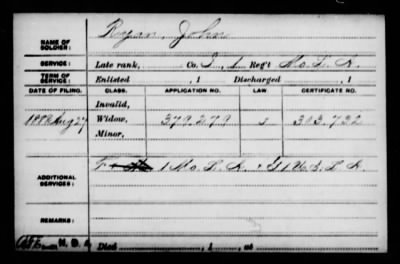 NAME OF SOLDIER: Ryan, John
SERVICE: Late rank, Co. I, 1 Reg't Mo. L. A.
TERM OF SERVICE: Enlisted , 1 Discharged , 1
DATE OF FILING. CLASS. APPLICATION NO. LAW. CERTIFICATE NO.
Invalid,
1888 Aug 27 Widow, 379,279 303,732
Minor,
ADDITIONAL SERVICES: F 1 Mo. L. A. + 1 L. A.
REMARKS:
Died , 1 , at